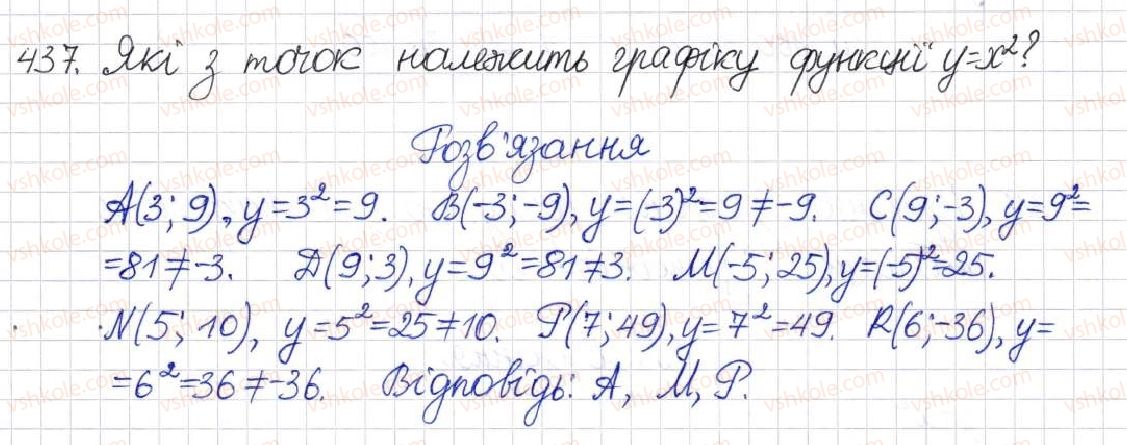 437. Які з точок належить графіку функції y=x²?
Розв'язання
A(3; 9), y=3²=9. B(-3; -9), y=(-3)²=9≠-9. C(9; -3), y=9²=
=81≠-3. D(9; 3), y=9²=81≠3. M(-5; 25), y=(-5)²=25.
N(5; 10), y=5²=25≠10. P(7; 49), y=7²=49. R(6; -36), y=
=6²=36≠-36. Відповідь: A, M, P.